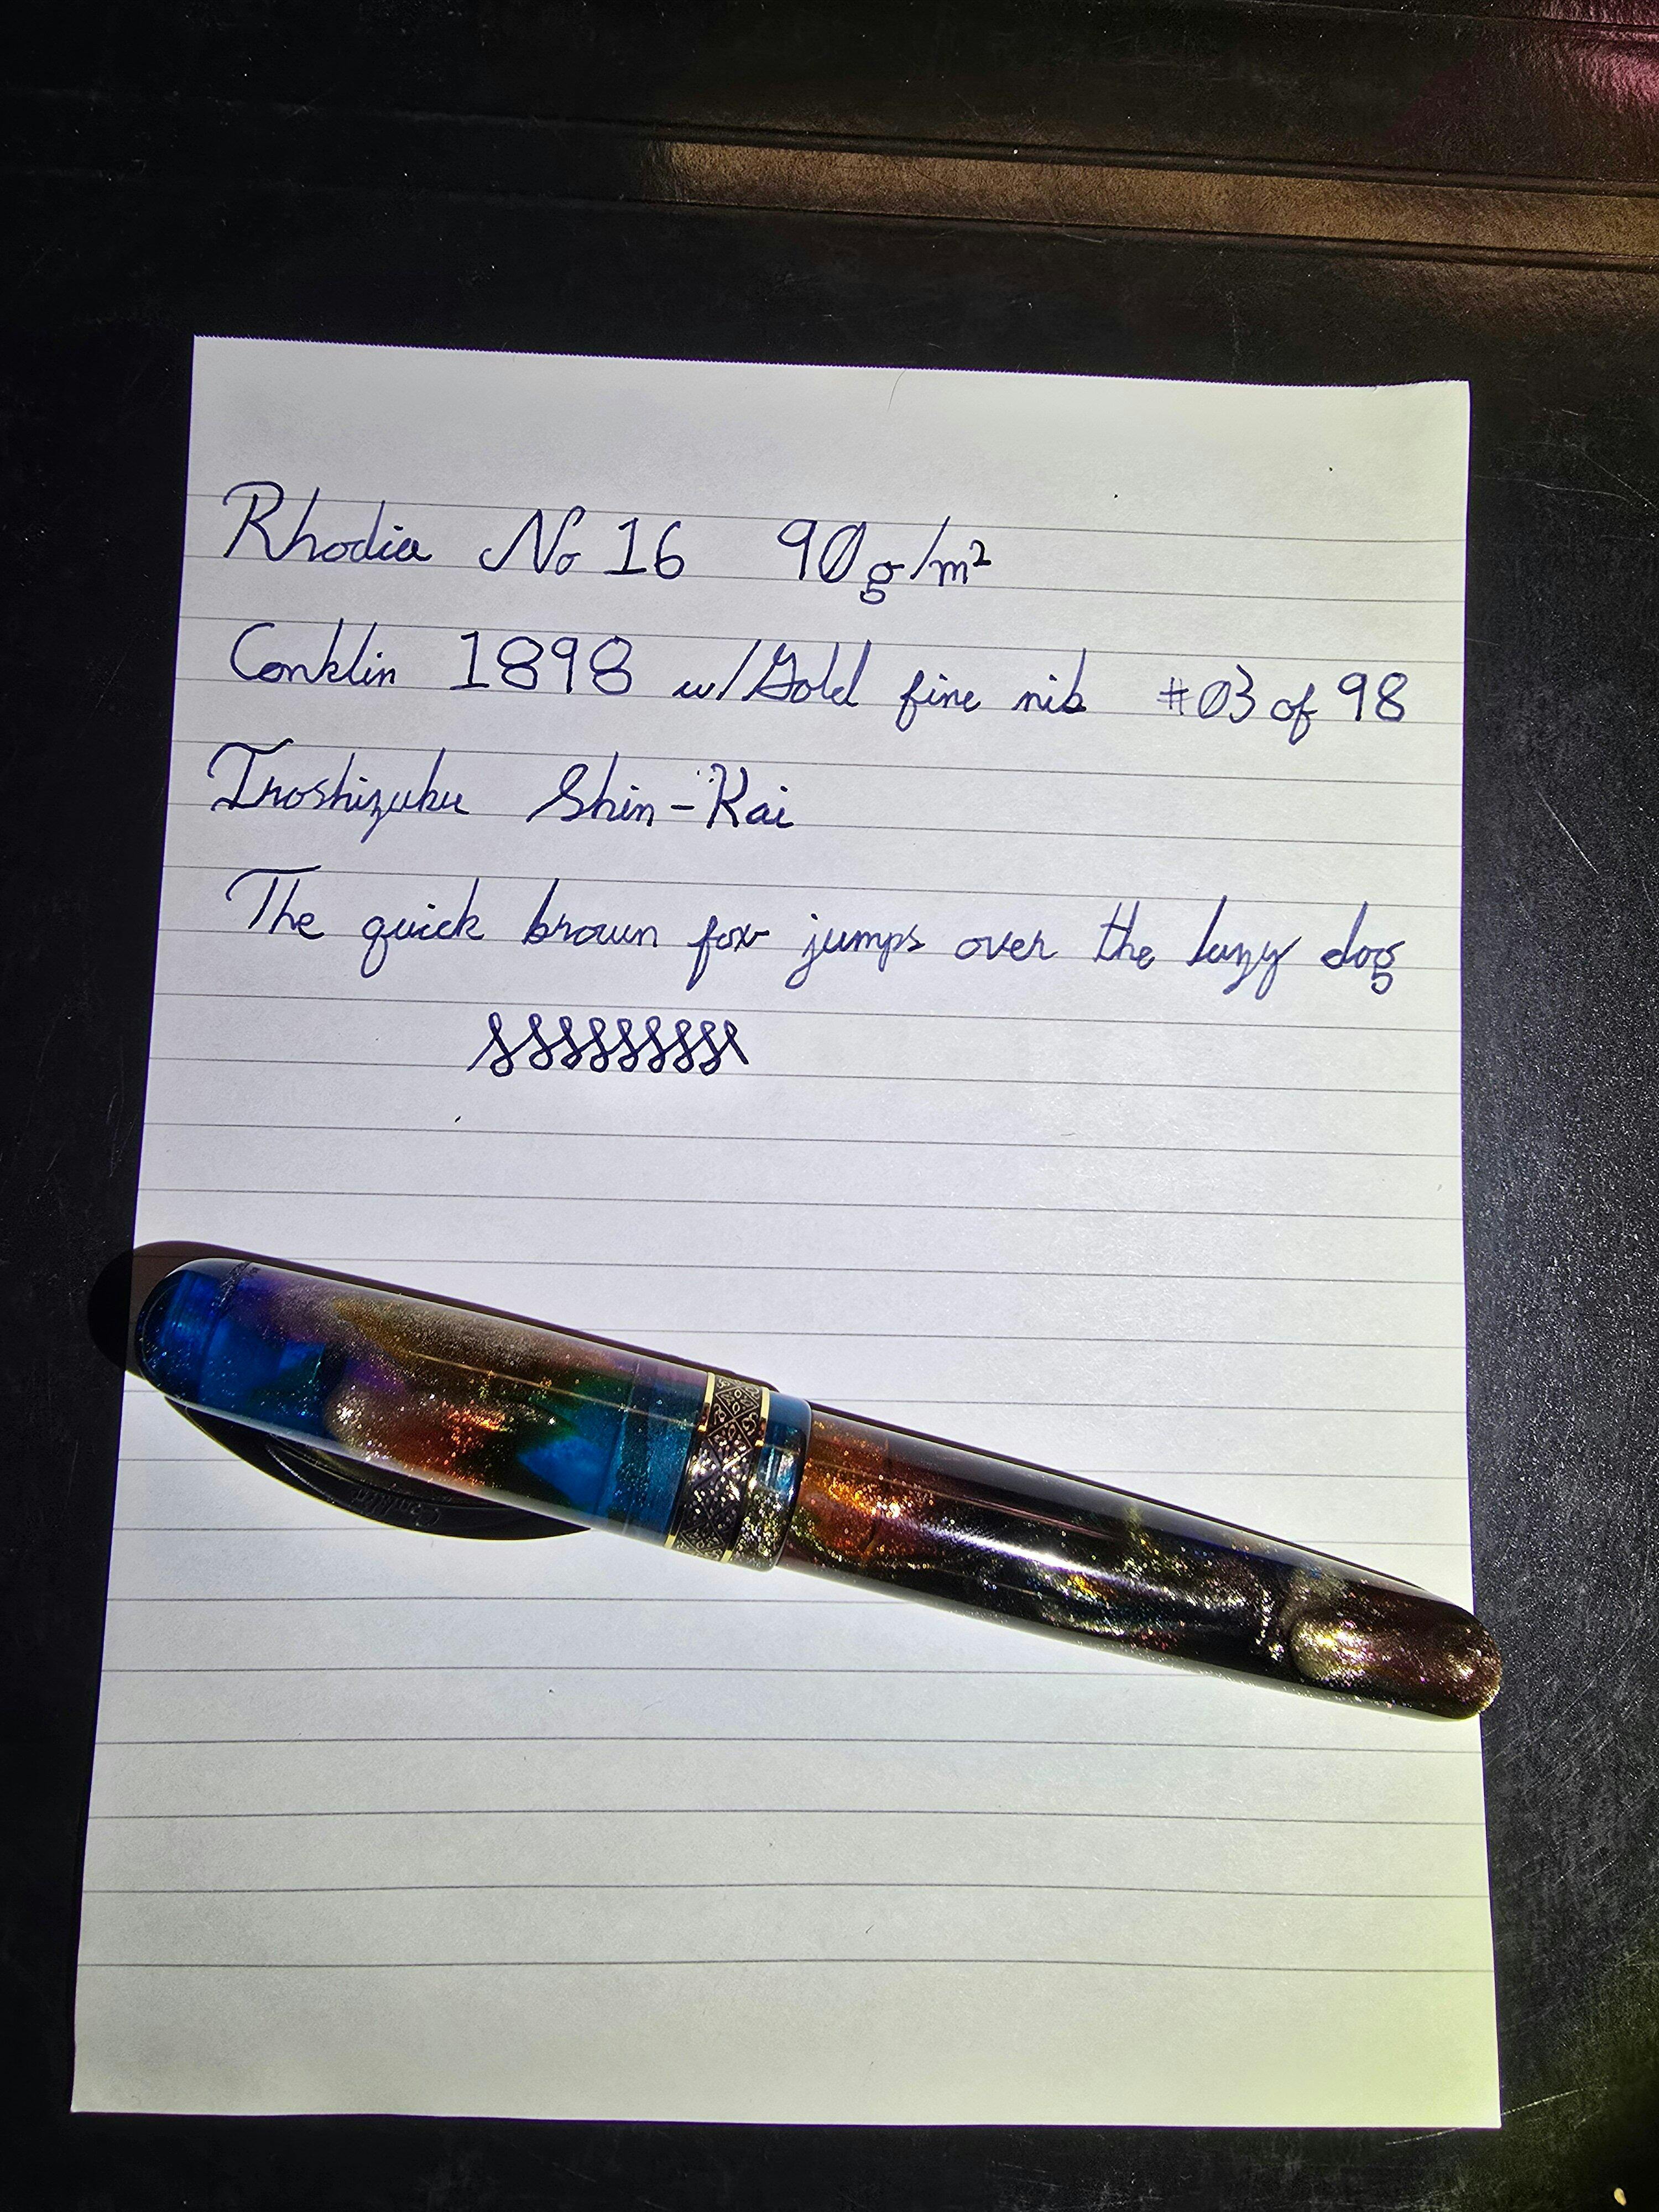 Rhodia No 16 90g/m²
Conklin 1898 w/Gold fine nib #03 of 98
Iroshizuku Shin-Kai
The quick brown fox jumps over the lazy dog
Conklin